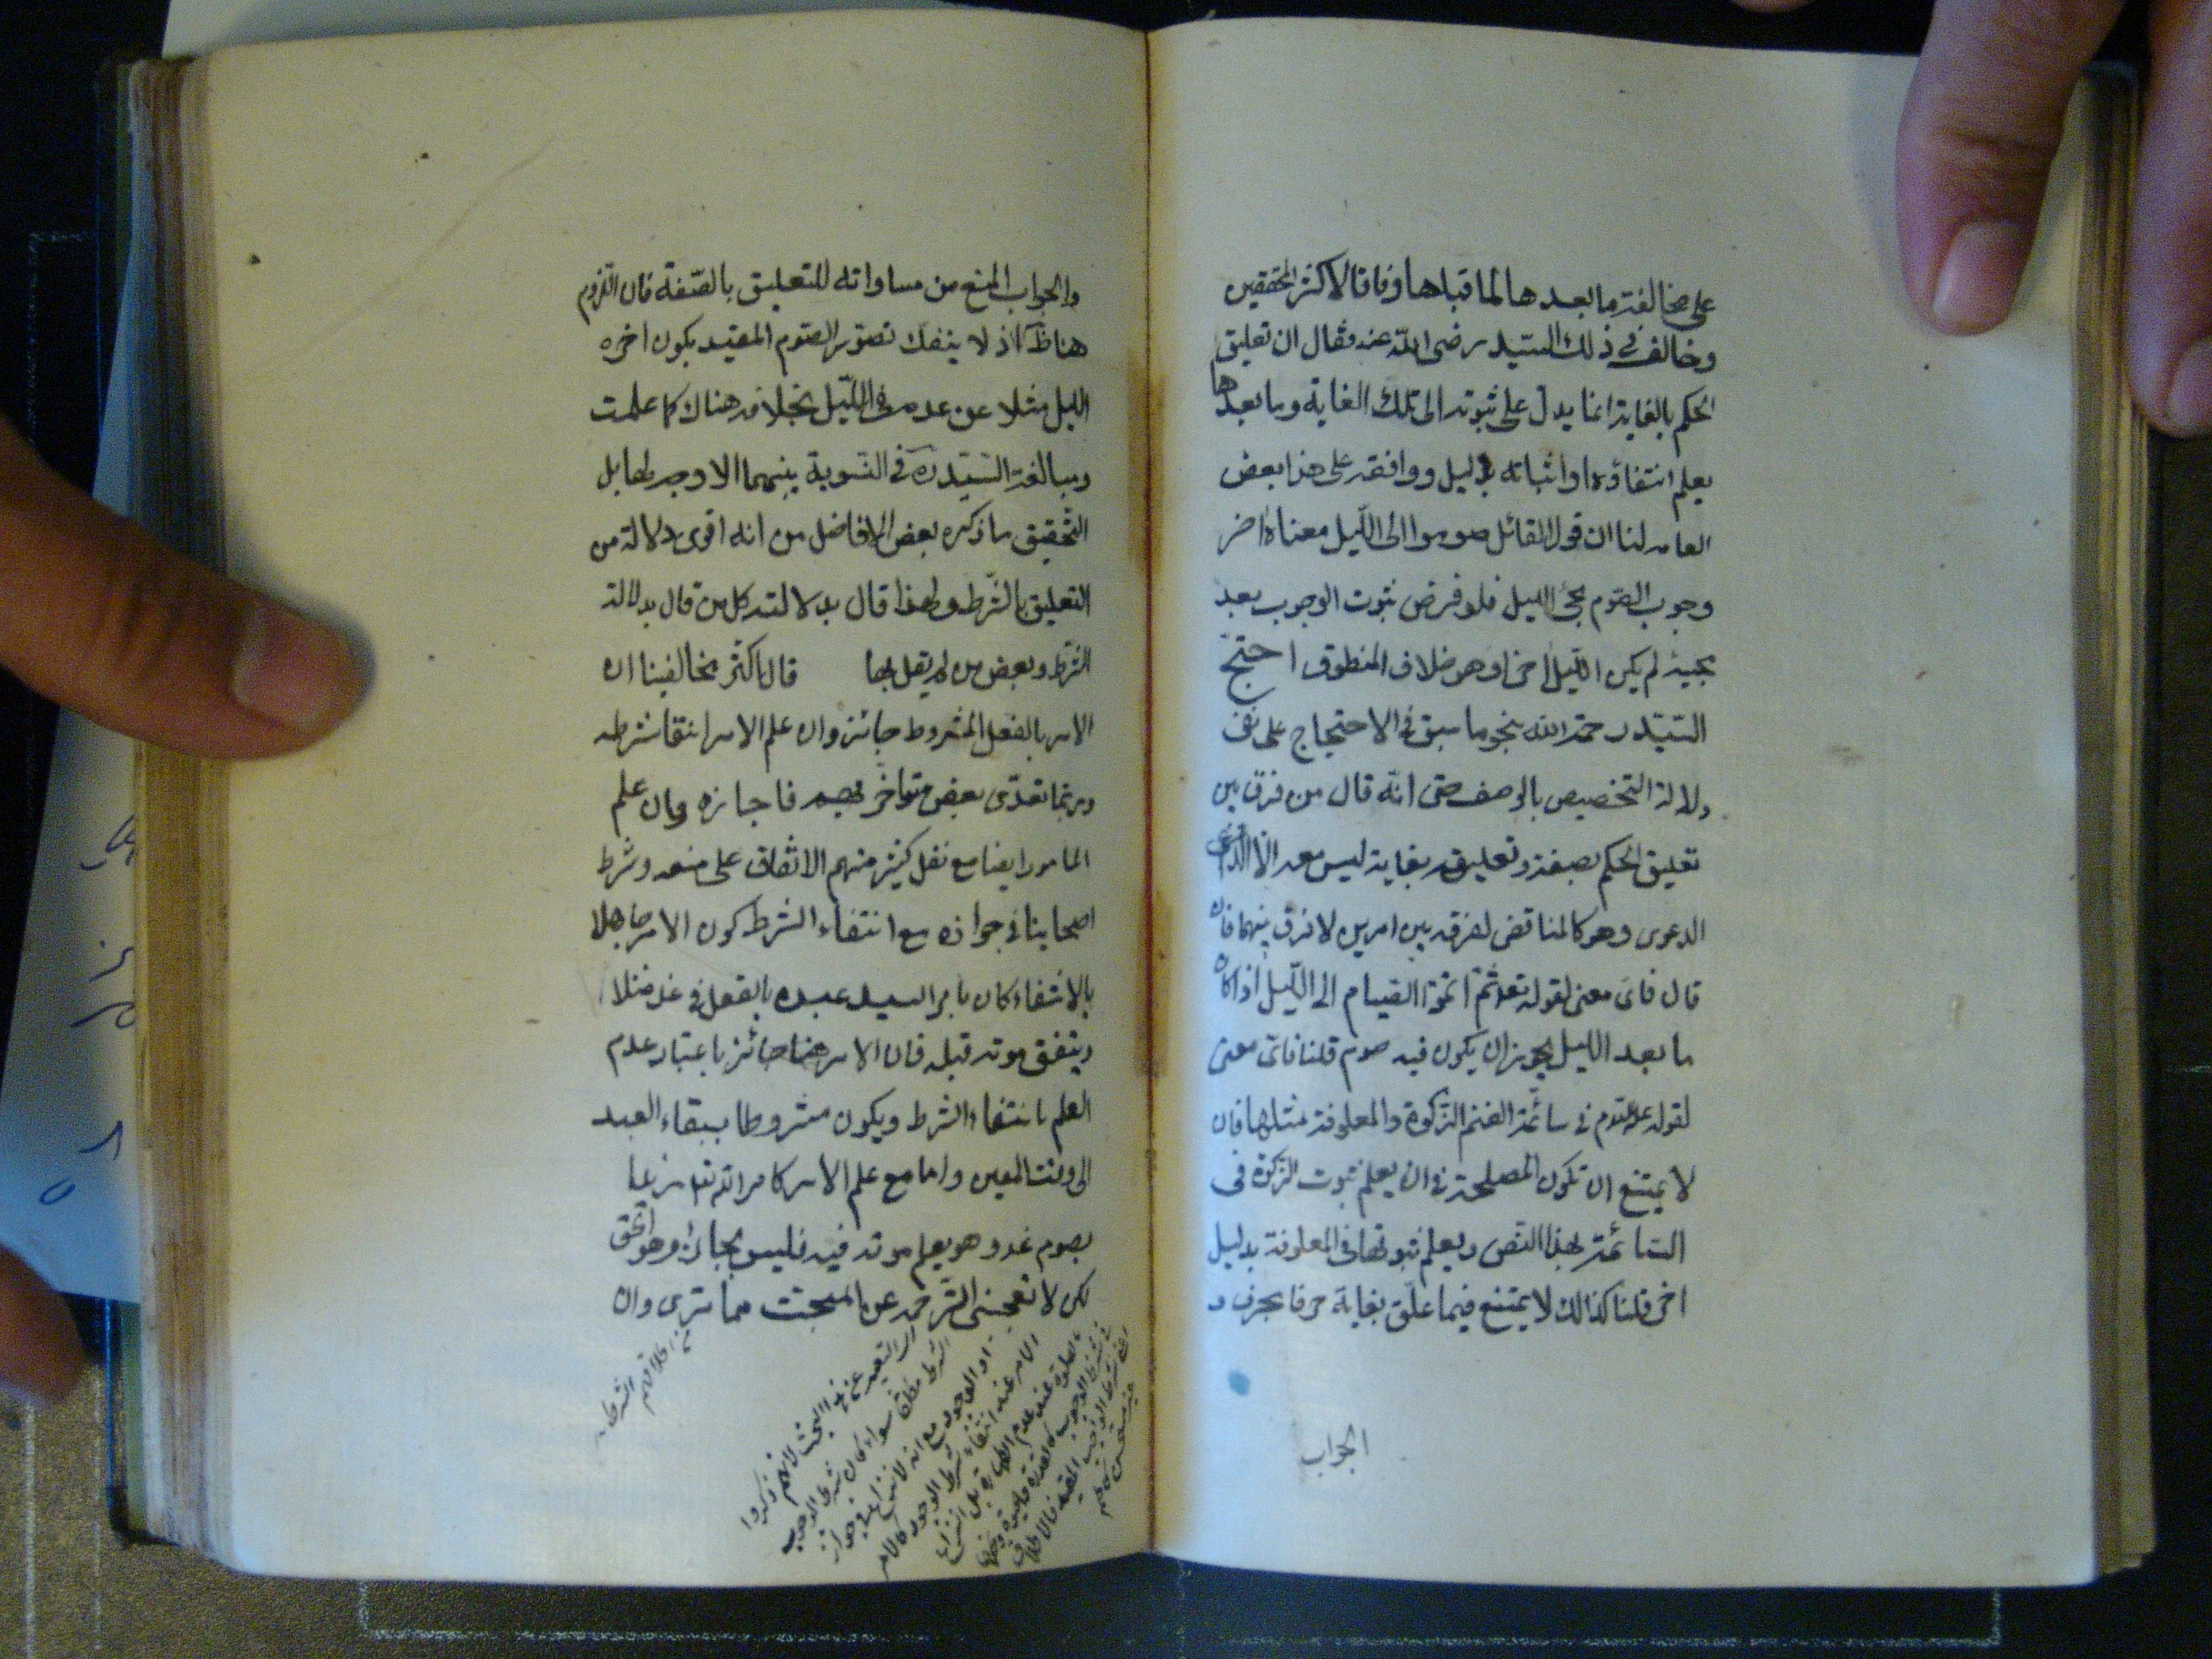 على مخالفة ما بعدها لما قبلها وفاقا لاكثر المحققين
وخالف في ذلك السيد رضى الله عنه فقال ان تعليق
الحكم بالغاية انما يدل على ثبوته الى تلك الغاية وما بعدها
يعلم انتفاؤه او اثباته بدليل ووافقه على هذا بعض
العامه لنا ان قول القائل صوموا الى الليل معناه اخر
وجوب الصوم مجئ الليل فلو فرض ثبوت الوجوب بعد
مجيئه لم يكن الليل اخرا وهو خلاف المنطوق احتج
السيد رحمة الله بنحو ما سبق في الاحتجاج على نفى
دلالة التخصيص بالوصف حتى انه قال من فرق بين
تعليق الحكم بصفة وتعليقه بغاية ليس معه الا
الدعوى وهو كالمناقض لفرقه بين امرين لا فرق بينهما فان
قال فاى معنى لقوله تعا ثم اتموا الصيام الى الليل اذا كان
ما بعد الليل يجوز ان يكون فيه صوم قلنا فاى معنى
لقوله في سائمة الغنم الزكوة والمعلوفة مثلها فان
لا يمتنع ان تكون المصلحة في ان يعلم ثبوت الزكوة فى
السائمة بهذا النص ويعلم ثبوتها في المعلوفة بدليل
اخر قلنا كذالك لا يمتنع فيما علق بغاية حرفا بحرف و
الجواب
والجواب المنع من مساواته للتعليق بالصفة فان اللزوم
هنا ظ اذ لا ينفك تصور الصوم المقيد بكون اخره
الليل مثلا عن عدمه في الليل بخلافه هناك كما علمت
ومبالغة السيد ره في التسوية بينهما لا وجه لها بل
التحقيق ما ذكره بعض الافاضل من انه اقوى دلالة من
التعليق بالشرط ولهذا قال بدلالته كل من قال بدلالة
الشرط وبعض من لم يقل بها قال اكثر مخالفينا ان
الامر بالفعل المشروط جائز وان علم الامر انتفا شرطه
وربما تعدى بعض متاخريهم فاجازه وان علم
المامور ايضا مع نقل كثير منهم الاتفاق على منعه وشرط
اصحابنا في جوازه مع انتفاء الشرط كون الامر جاهلا
بالانتفاء كان يامر السيد عبده بالفعل في غد مثلا
ويتفق موته قبله فان الامر هنا جائز باعتبار عدم
العلم بانتفاء الشرط ويكون مشروطا ببقاء العبد
الى الوقت المعين واما مع علم الامر كامر الله تعا زيدا
بصوم غد وهو يعلم موته فيه فليس بجائز وهو الحق
لكن لا تعجبنى الترجمه عن المبحث مما ترى وان